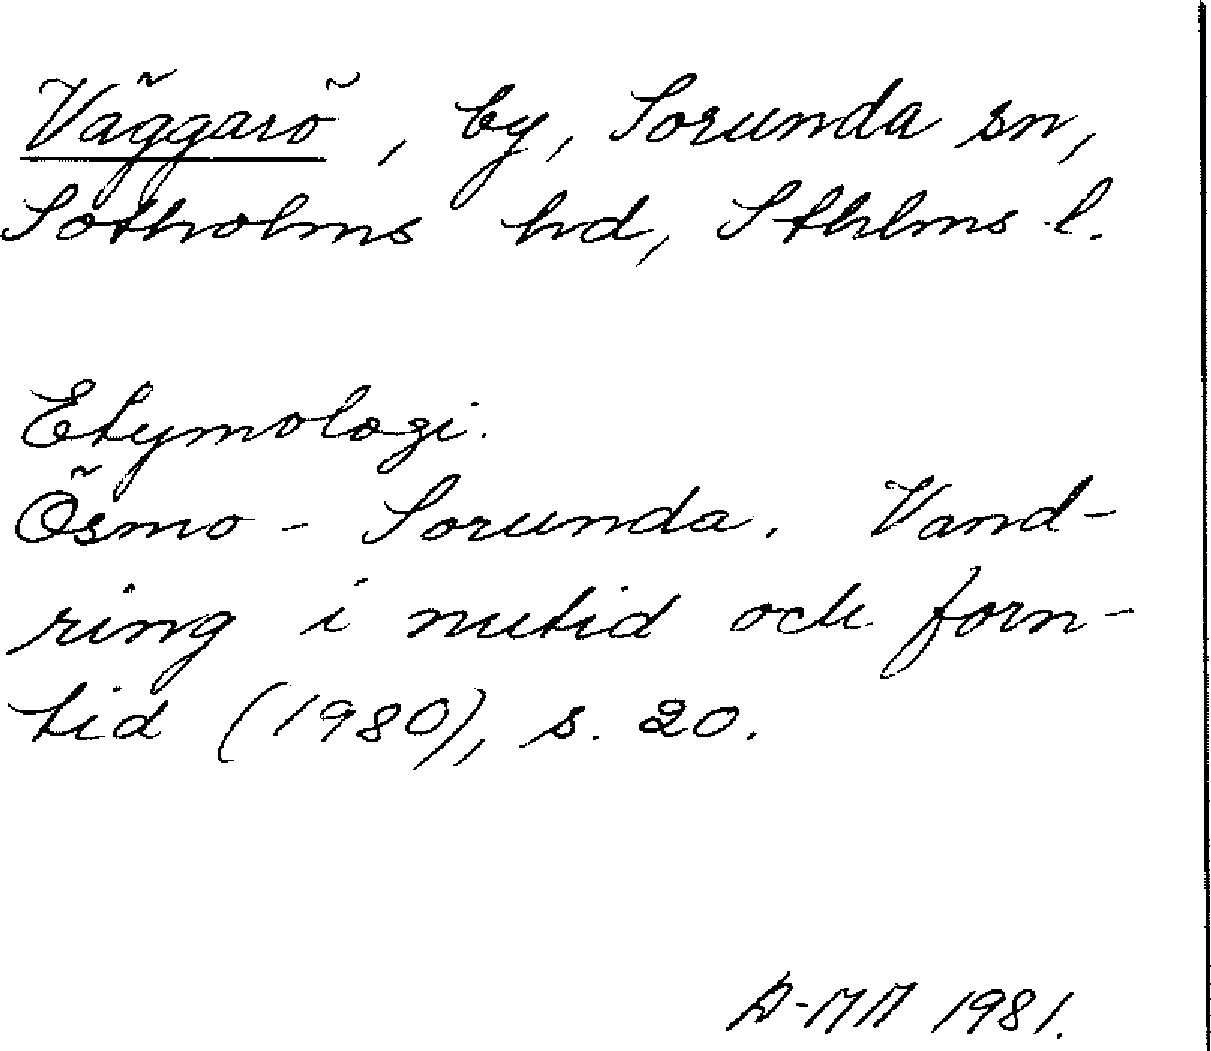 Väggarö, by, Sorunda sn,
Sotholms hd, Sthlms l.
Etymologi.
Ösmo - Sorunda. Vand-
ring i nutid och forn-
tid (1980), s. 20.
A-MM 1981.